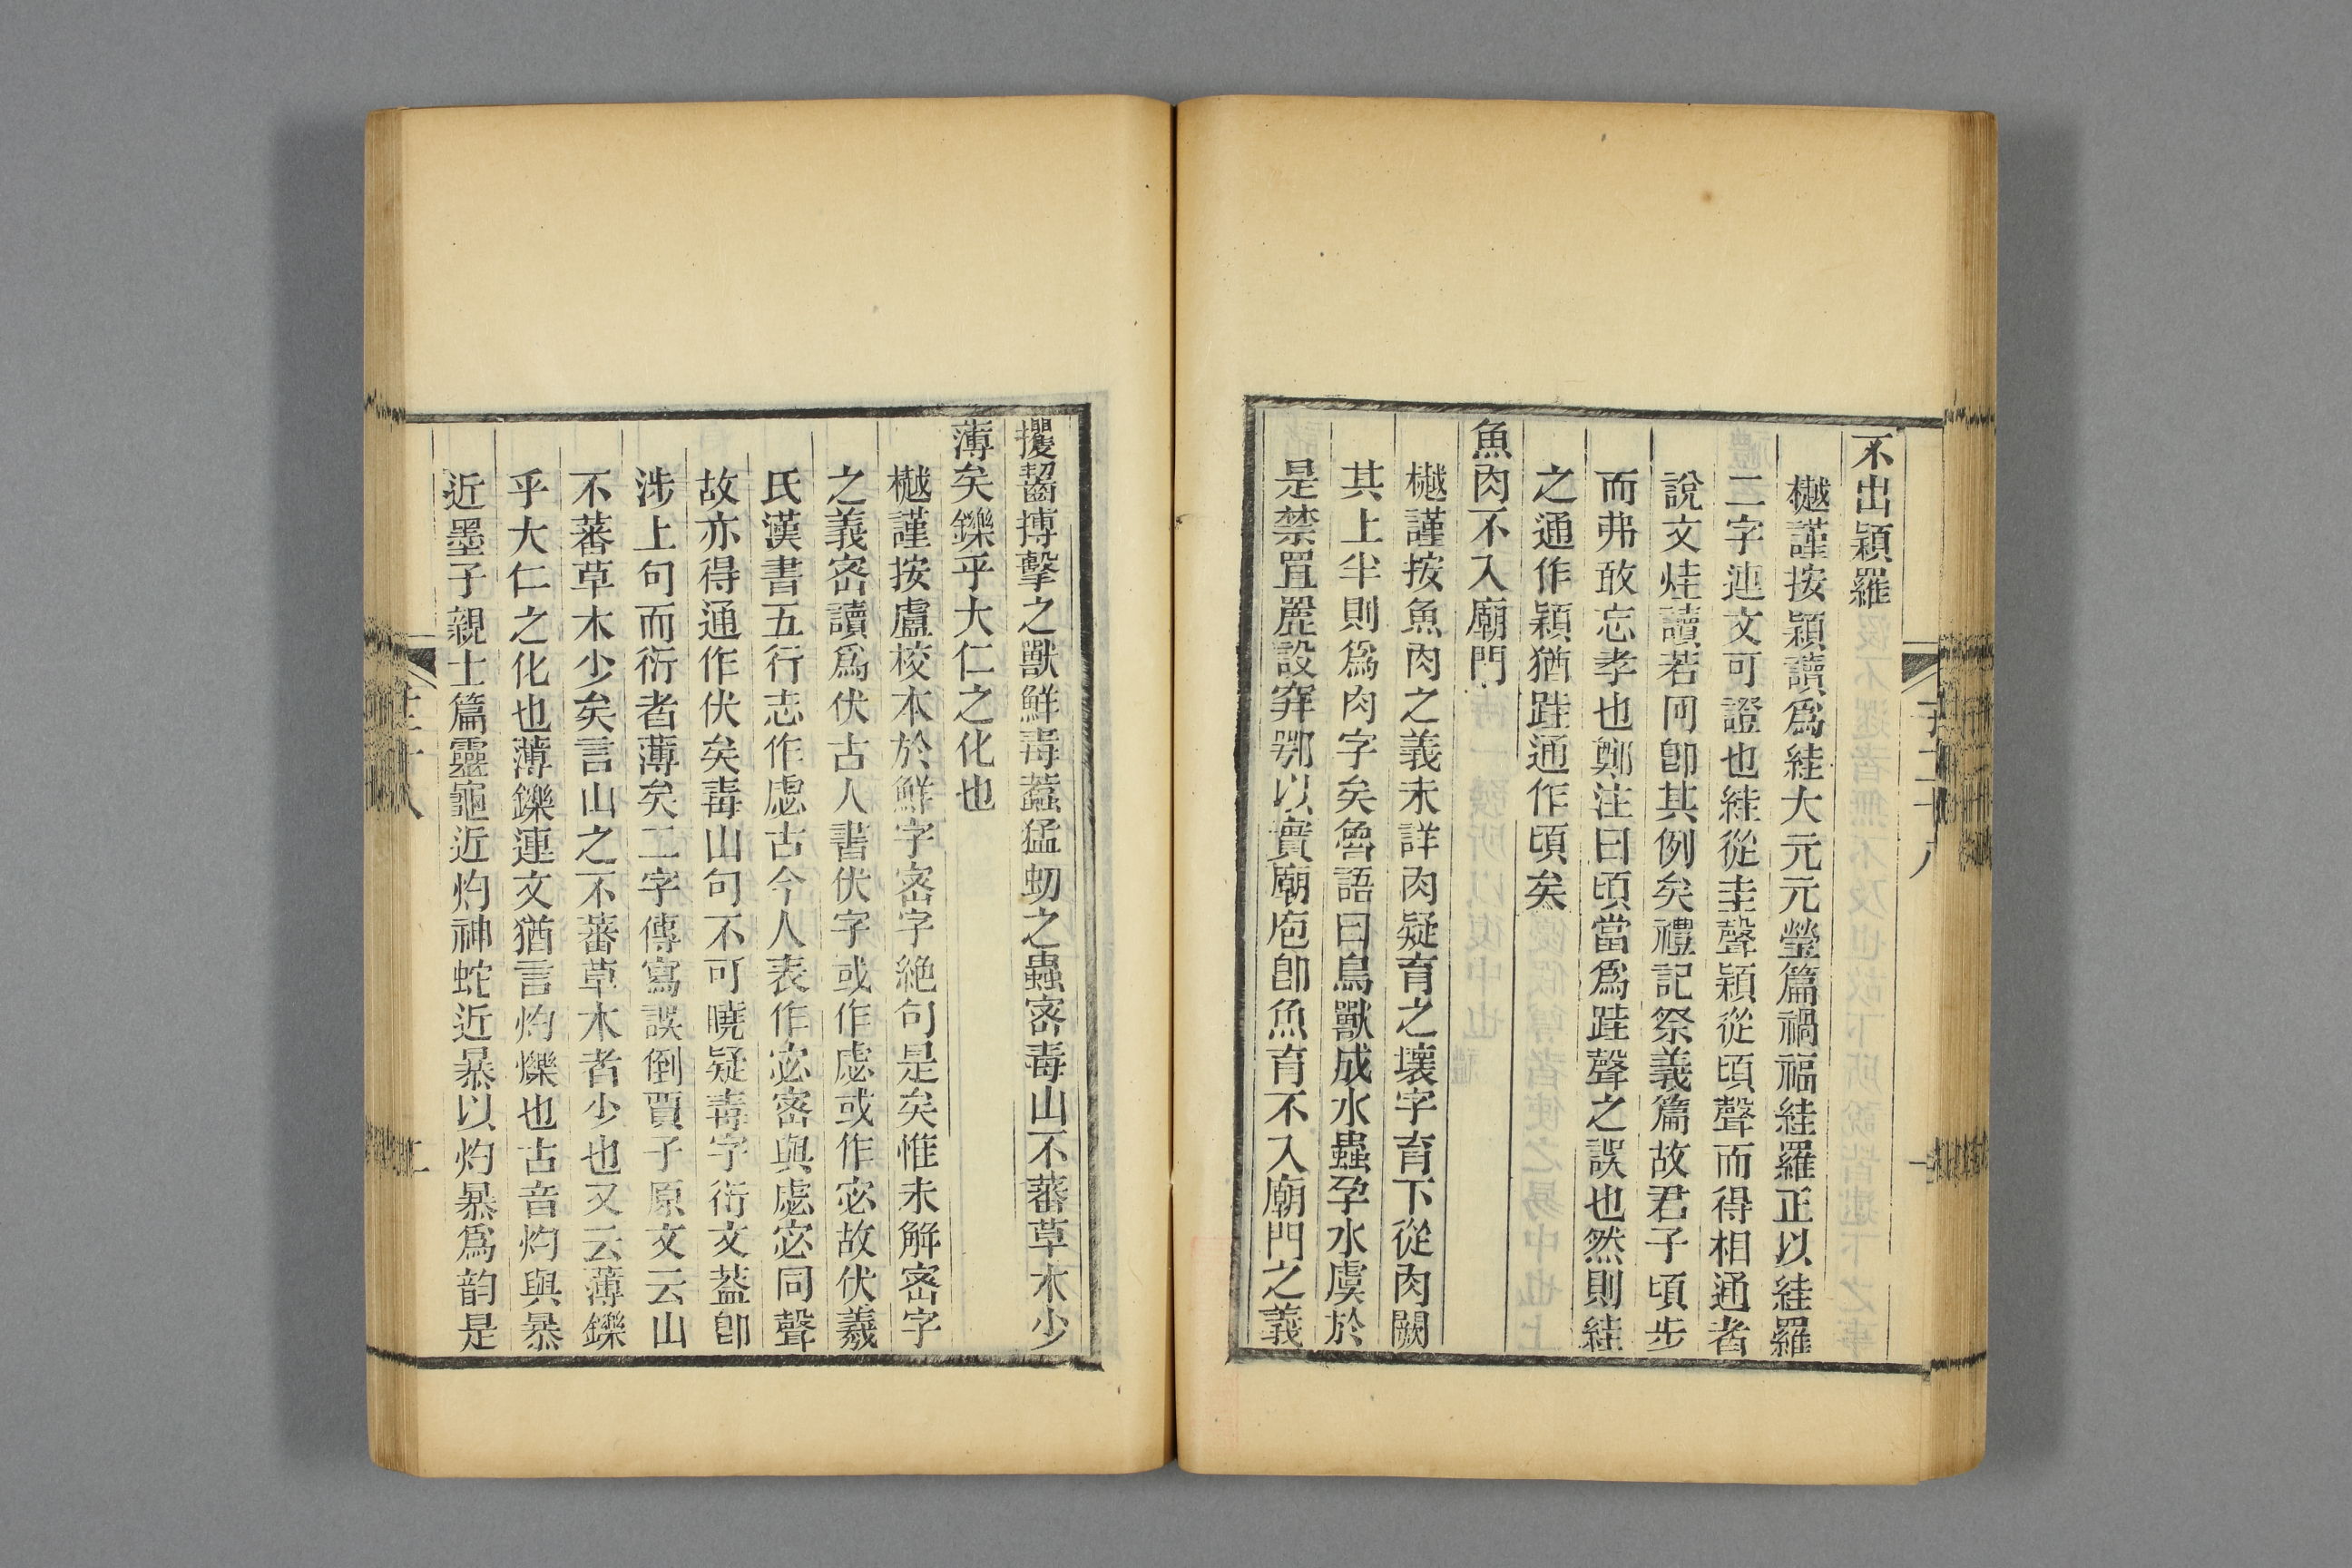 不出穎羅
樾謹按穎讀爲絓大元元瑩篇禍福絓羅正以絓羅
二字連文可證也絓從圭聲穎從頃聲而得相通者
說文烓讀若冋卽其例矣禮記祭義篇故君子頃步
而弗敢忘孝也鄭注曰頃當爲跬聲之誤也然則絓
之通作穎猶跬通作頃矣
魚肉不入廟門
樾謹按魚肉之義未詳肉疑育之壞字育下從肉闕
其上半則爲肉字矣魯語曰鳥獸成水蟲孕水虞於
是禁罝麗設穽鄂以實廟庖卽魚育不入廟門之義
攫齧搏擊之獸鮮毒蠚猛虭之蟲密毒山不蕃草木少
薄矣鑠乎大仁之化也
樾謹按盧校本於鮮字密字絶句是矣惟未解密字
之義密讀爲伏古人書伏字或作虙或作宓故伏羲
氏漢書五行志作虙古今人表作宓密與虙宓同聲
故亦得通作伏矣毒山句不可曉疑毒字衍文葢卽
涉上句而衍者薄矣二字傳寫誤倒賈子原文云山
不蕃草木少矣言山之不蕃草木者少也又云薄鑠
乎大仁之化也薄鑠連文猶言灼爍也古音灼與暴
近墨子親士篇靈龜近灼神蛇近暴以灼暴爲韵是